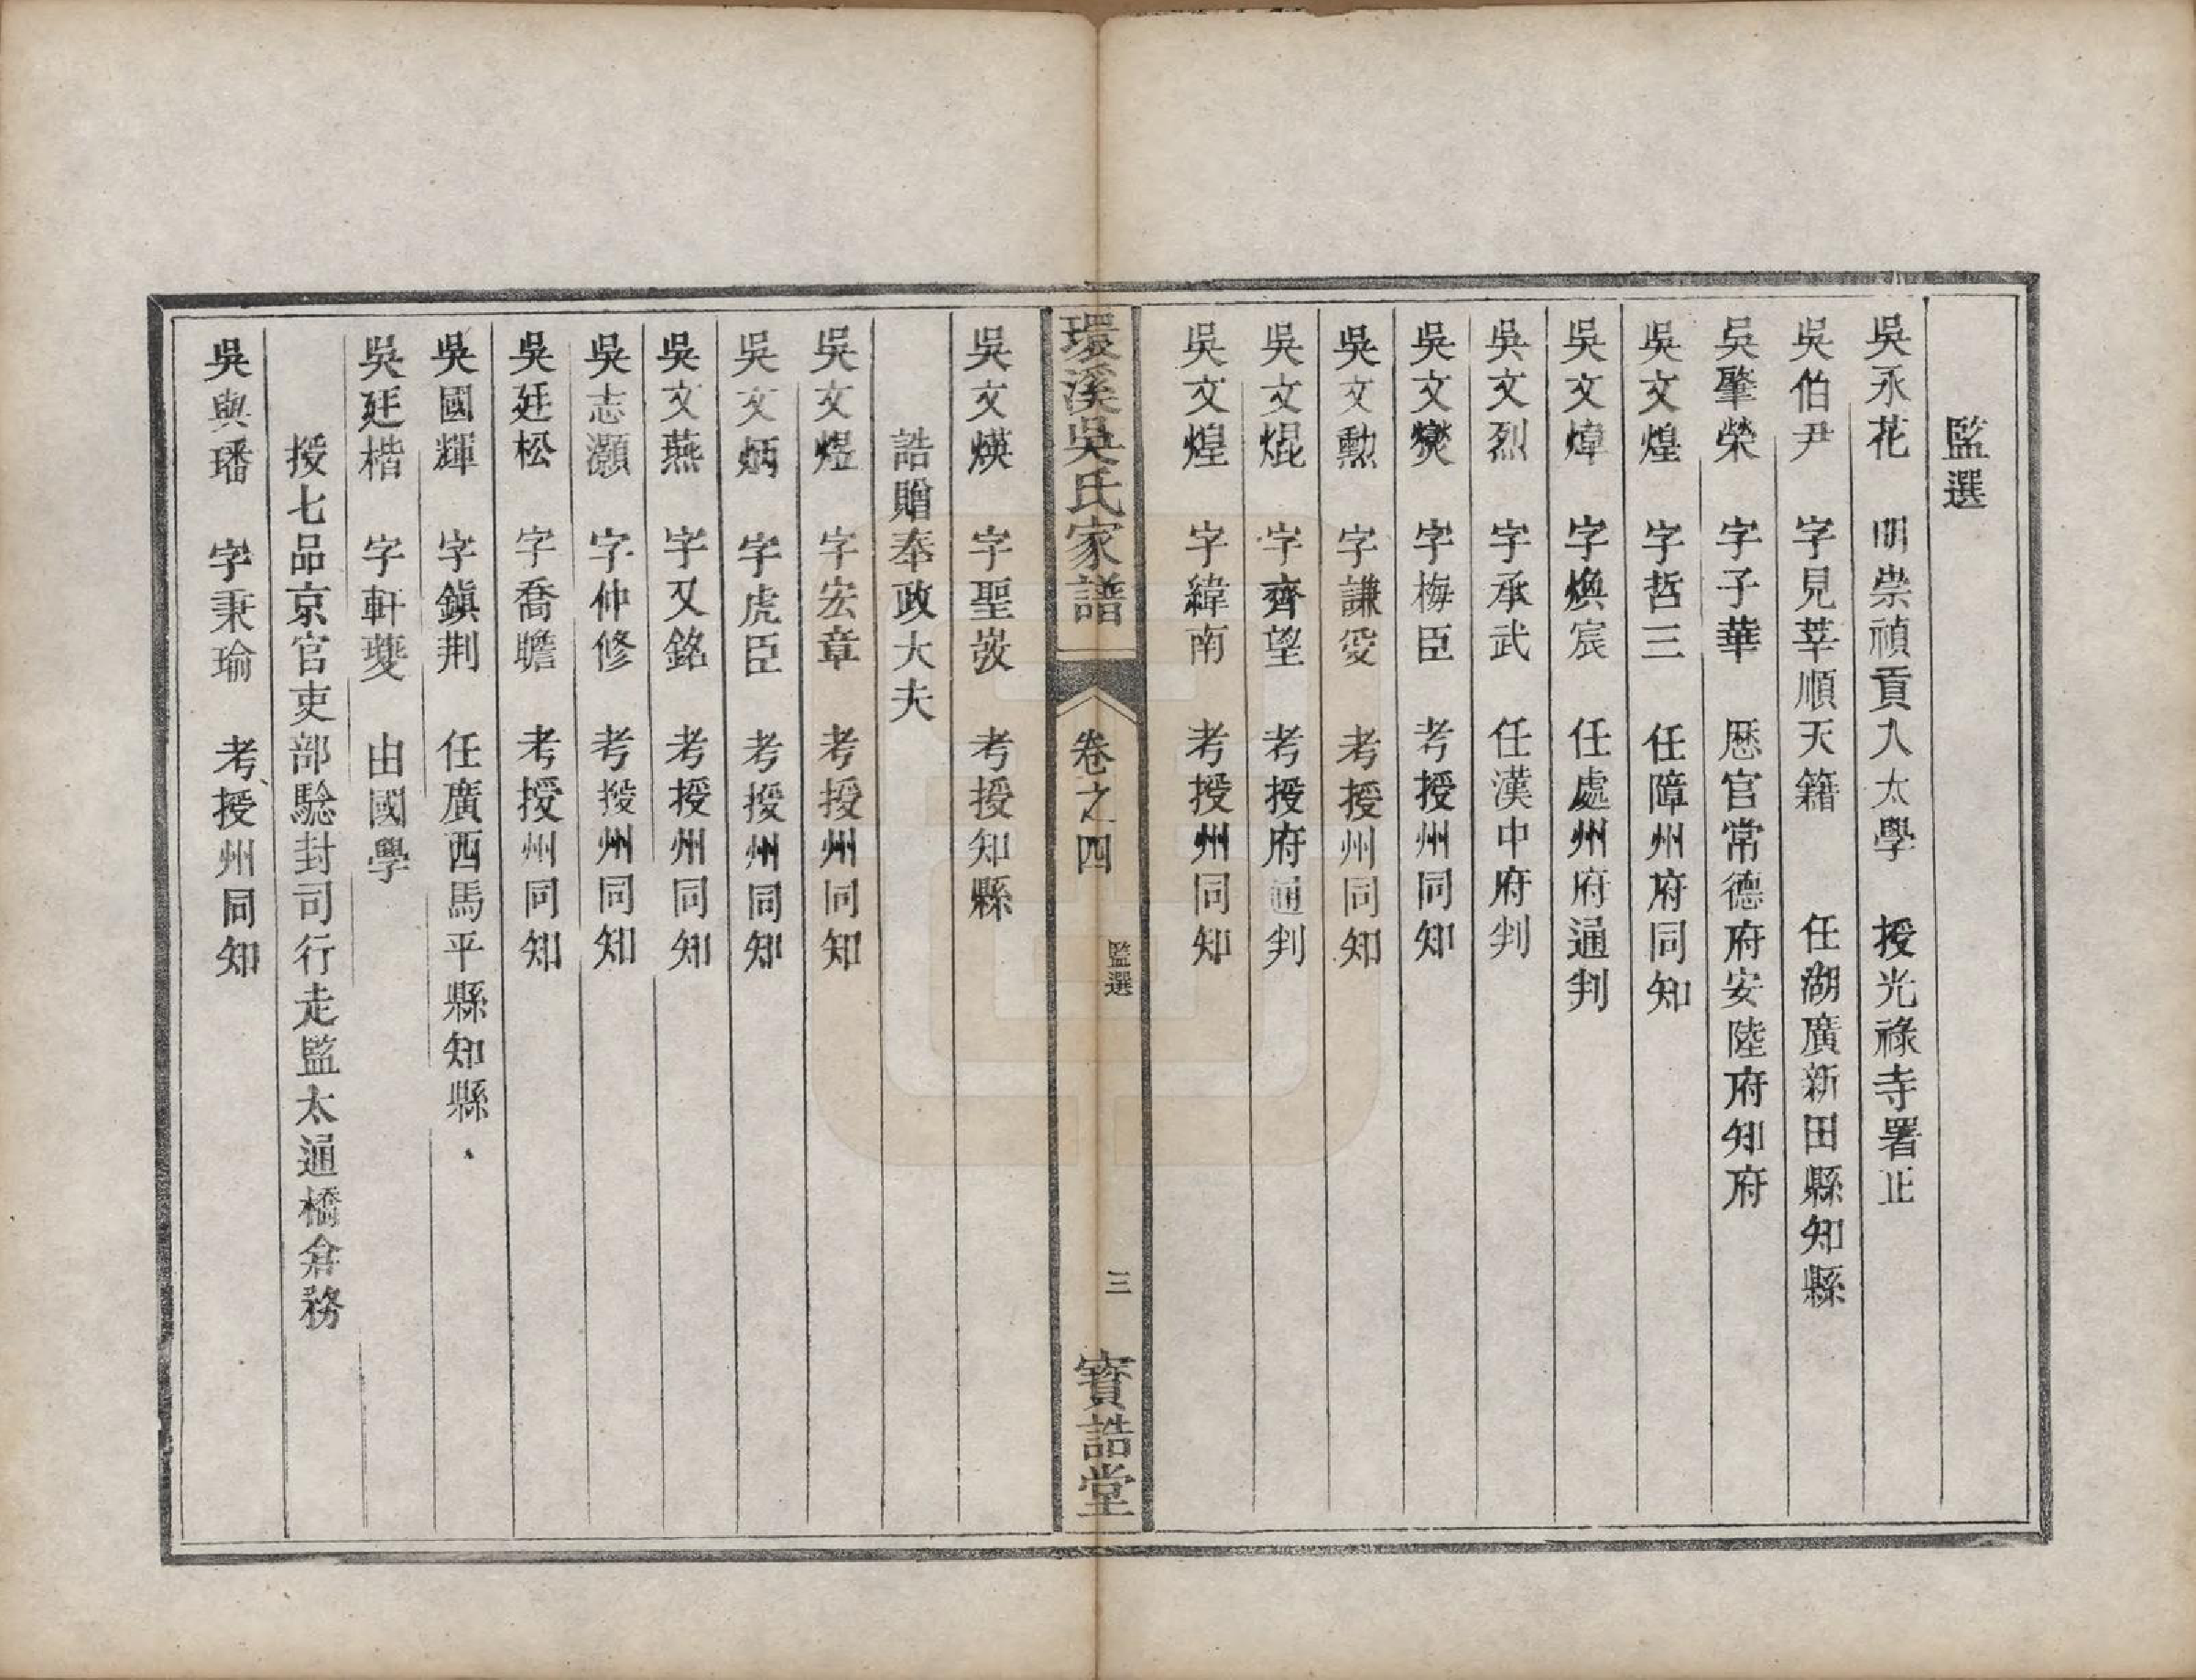 監選
吳永花　明崇禎貢入太學　授光祿寺署正
吳伯尹　字見莘順天籍　任湖廣新田縣知縣
吳肇榮　字子華　歷官常德府安陸府知府
吳文煌　字哲三　任障州府同知
吳文煒　字煥宸　任處州府通判
吳文烈　字承武　任漢中府判
吳文爕　字梅臣　考授州同知
吳文勲　字謙受　考授州同知
吳文焜　字齊望　考授府通判
吳文煌　字緯南　考授州同知
環溪吳氏家譜　卷之四　監選　三　寳誥堂
吳文煐　字聖敳　考授知縣
誥贈奉政大夫
吳文煜　字宏章　考授州同知
吳文炳　字虎臣　考授州同知
吳文燕　字又銘　考授州同知
吳志灝　字仲修　考授州同知
吳廷松　字喬瞻　考授州同知
吳國輝　字鎮荆　任廣西馬平縣知縣
吳廷楷　字軒夔　由國學
授七品京官吏部騐封司行走監太通橋倉務
吳與璠　字秉瑜　考授州同知